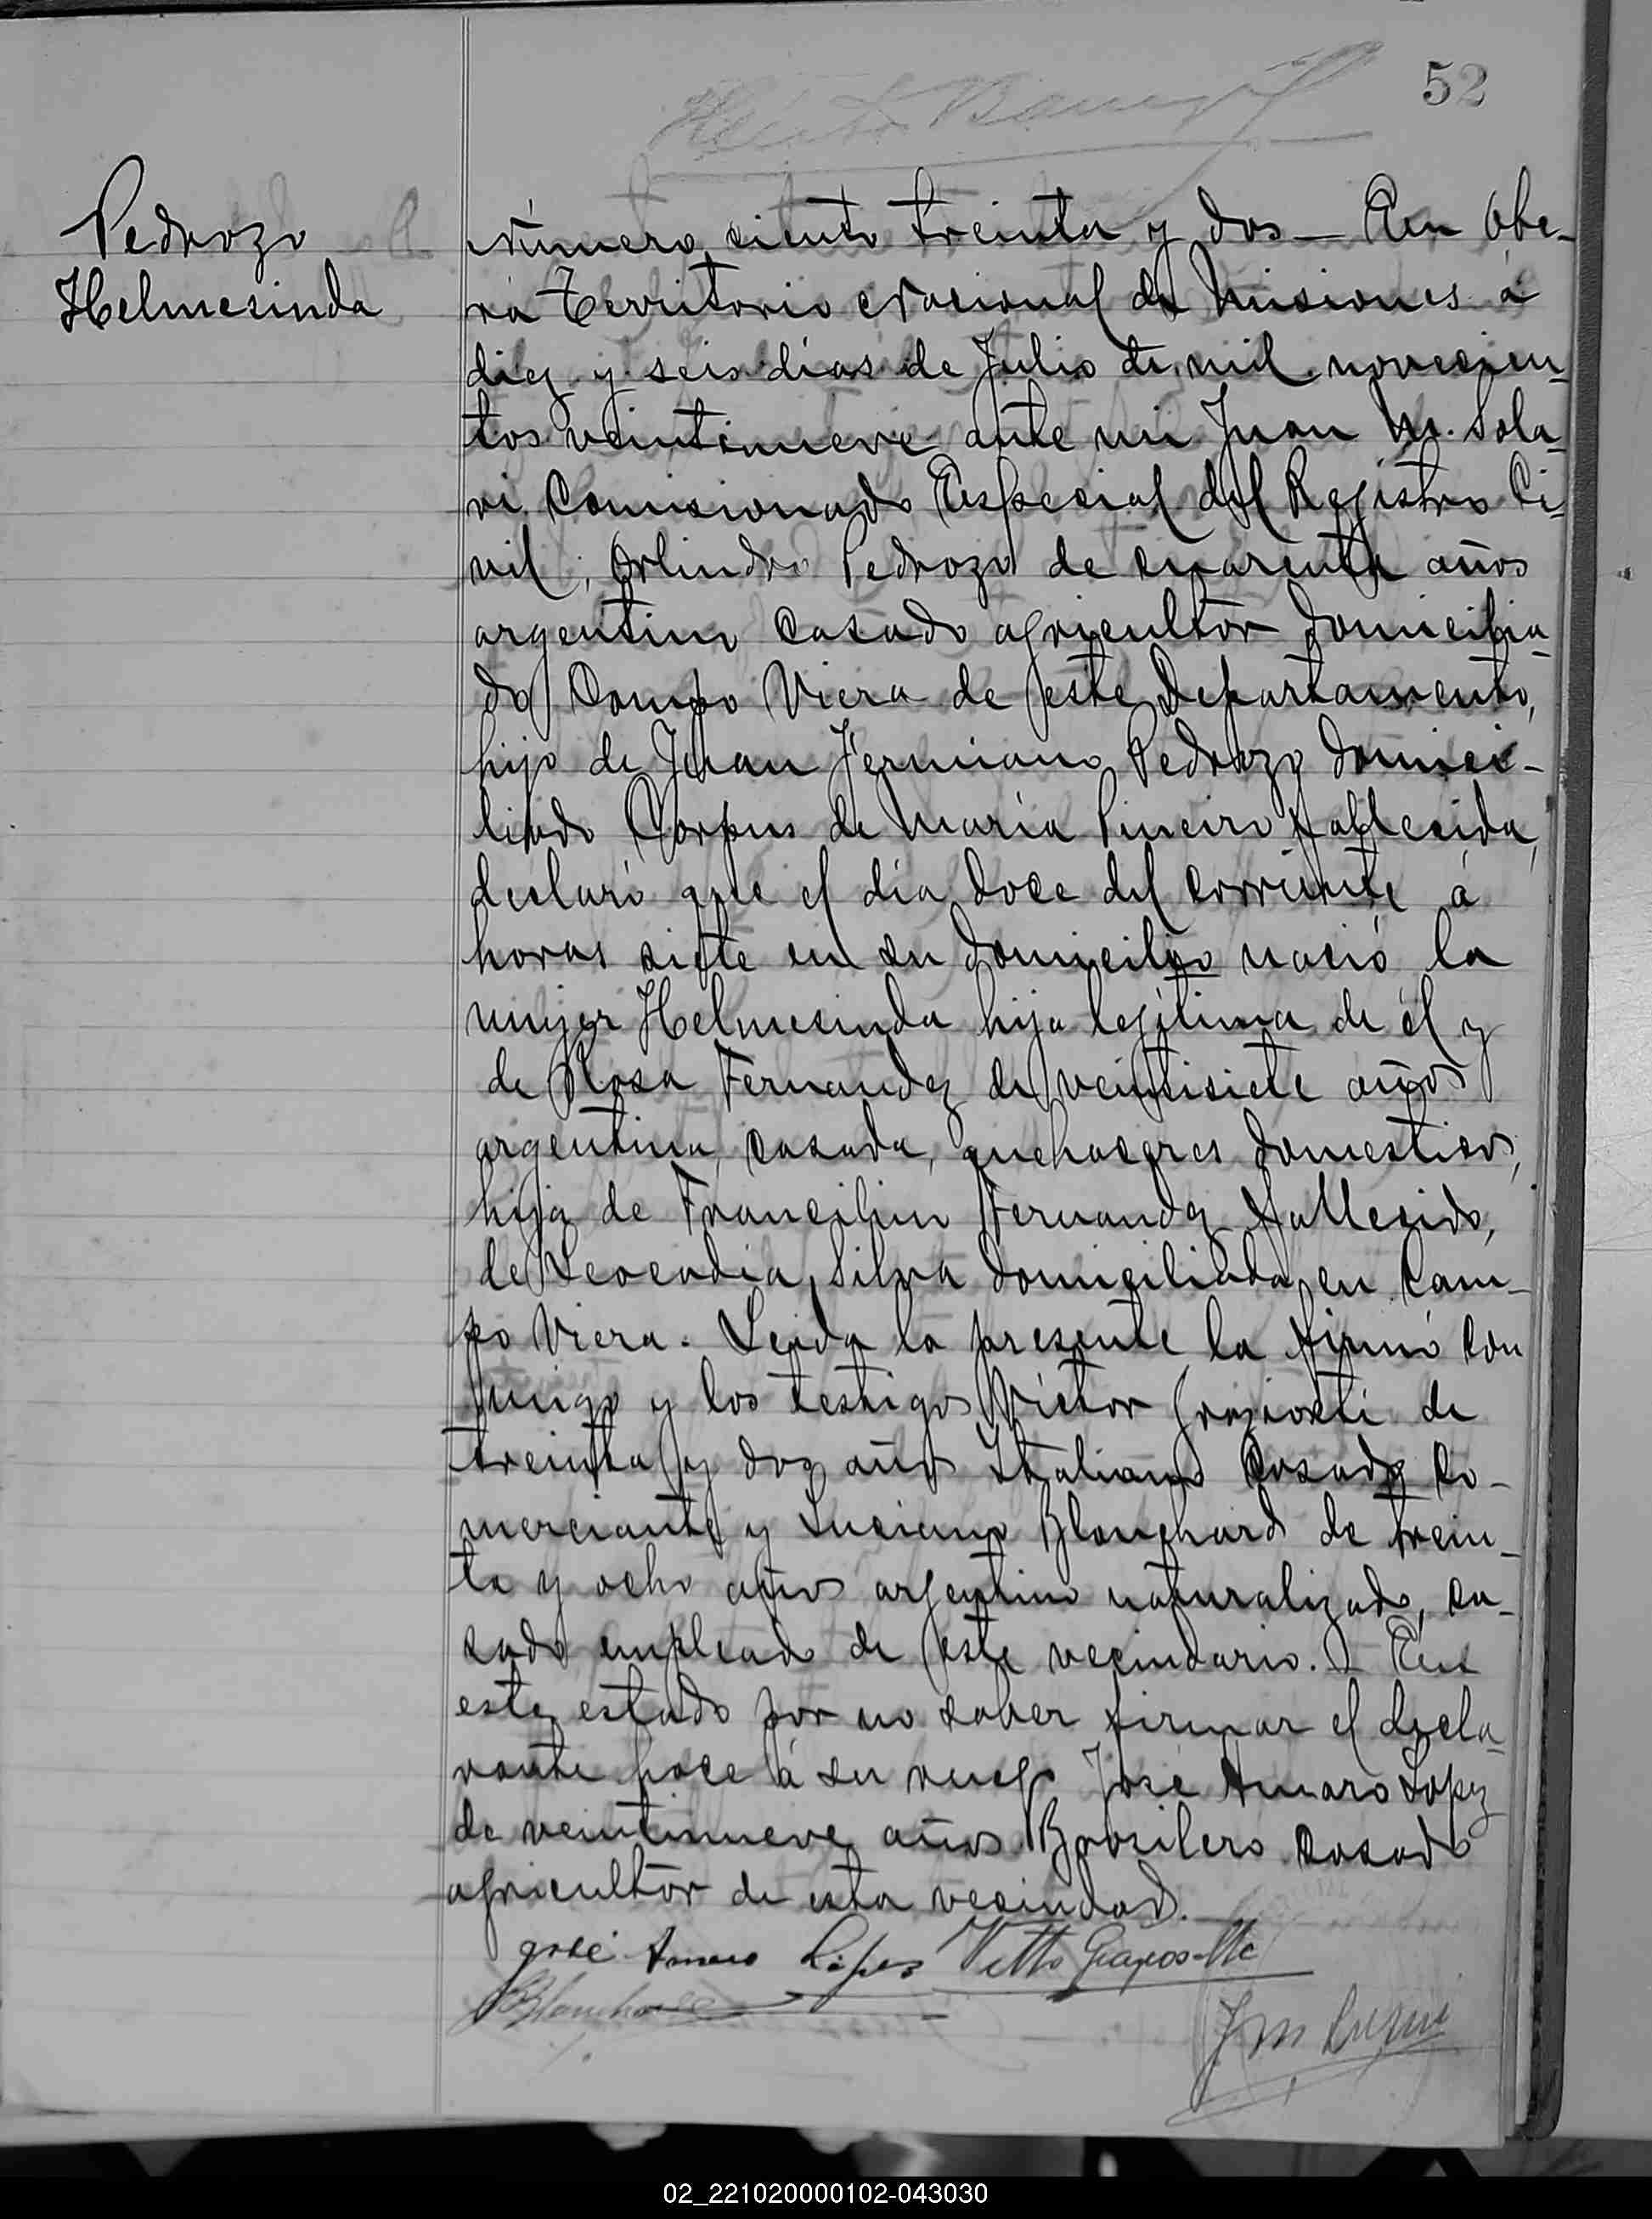 52
Pedrozo
Helmesinda
Número ciento treinta y dos — En Obe-
rá Territorio Nacional de Misiones á
diez y seis días de Julio de mil novecien-
tos veintinueve ante mi Juan M. Sola-
ri Comisionado Especial del Registro Ci-
vil, Orlindro Pedrozo de cuarenta años
argentino casado agricultor domicilia-
do Campo Viera de este Departamento,
hijo de Juan Jermiano Pedrozo domici-
liado Corpus de María Pineiro fallecida,
declaró que el día doce del corriente á
horas siete en su domicilio nació la
mujer Helmesinda hija legítima de él y
de Rosa Fernandez de veintisiete años
argentina, casada, quehaceres domesticos,
hija de Francilino Fernandez fallecido,
de Leocadia Silva domiciliada en Cam-
po Viera. Leida la presente la firmó con
migo y los testigos Victor de
treinta y dos años Italiano casado co-
merciante y Luciano Blanchard de trein-
ta y ocho años argentino naturalizado, ca-
sado empleado de este vecindario. — En
este estado por no saber firmar el decla-
rante hace á su ruego José Amaro Lopez
de veintinueve años Brasilero casado
agricultor de esta vecindad.
José Amaro López Vitto
Blanchard
02_221020000102-043030